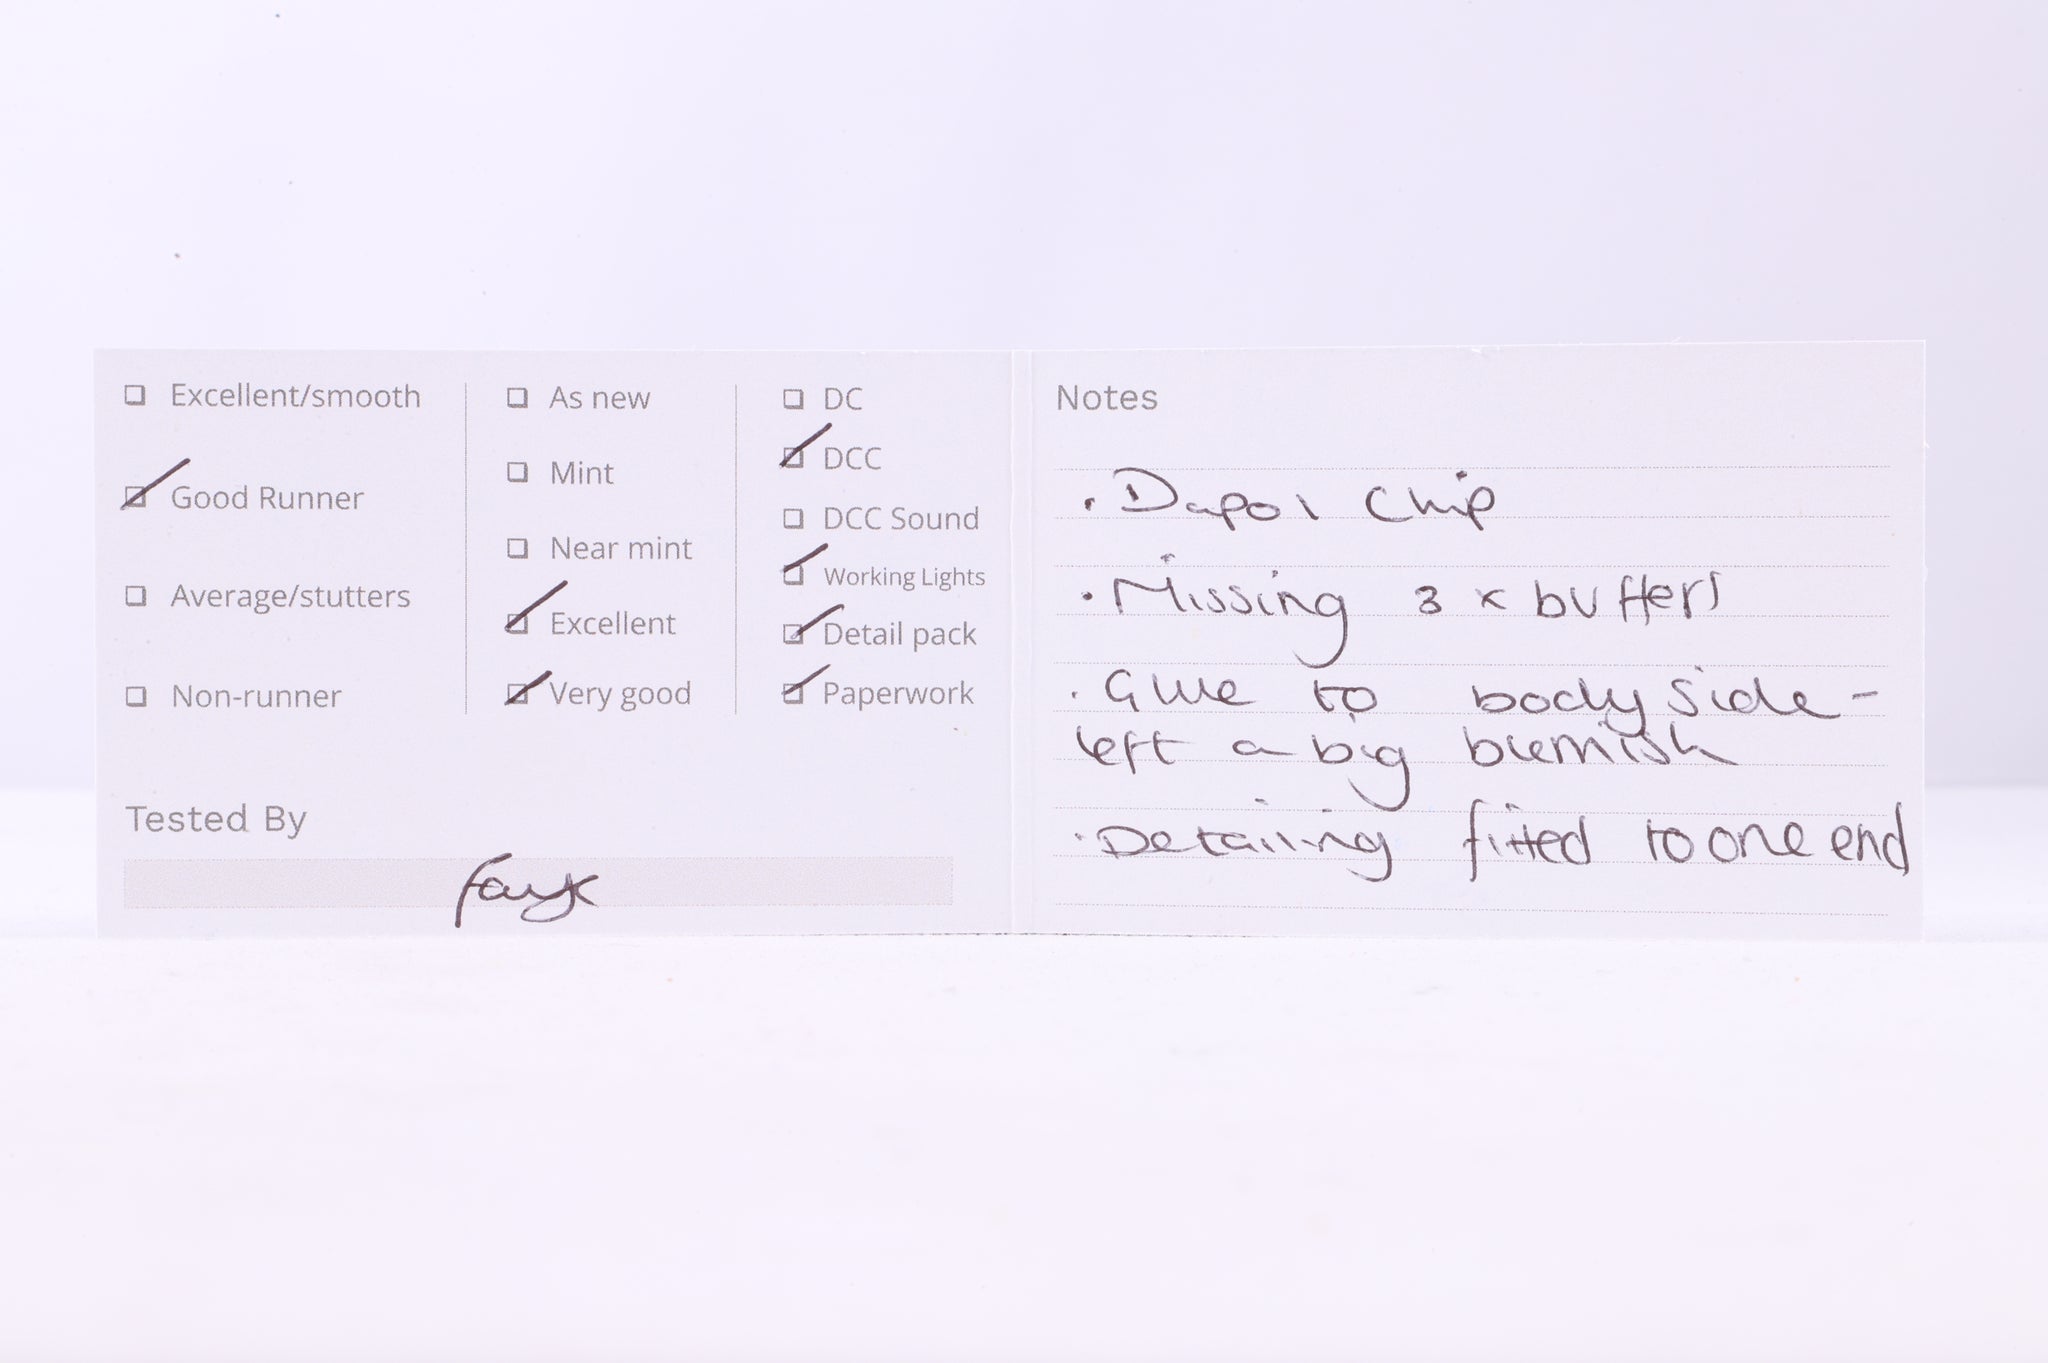 Excellent/smooth
Good Runner
Average/stutters
Non-runner
As new
Mint
Near mint
Excellent
Very good
DC
DCC
DCC Sound
Working Lights
Detail pack
Paperwork
Tested By
Notes
· Dapol Chip
· Missing 3 x buffers
· Glue to body side -
left a big blemish
· Detailing fitted to one end